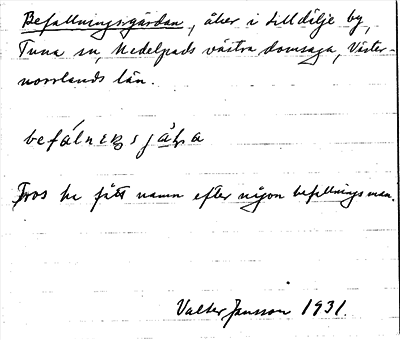 Befallningsgärdan, åker i Lilldälje by,
Tuna sn, Medelpads västra domsaga, Väster-
norrlands län.
befálnɛŋsjà
Tros ha fått namn efter någon befallningsman.
Valter Jansson 1931.